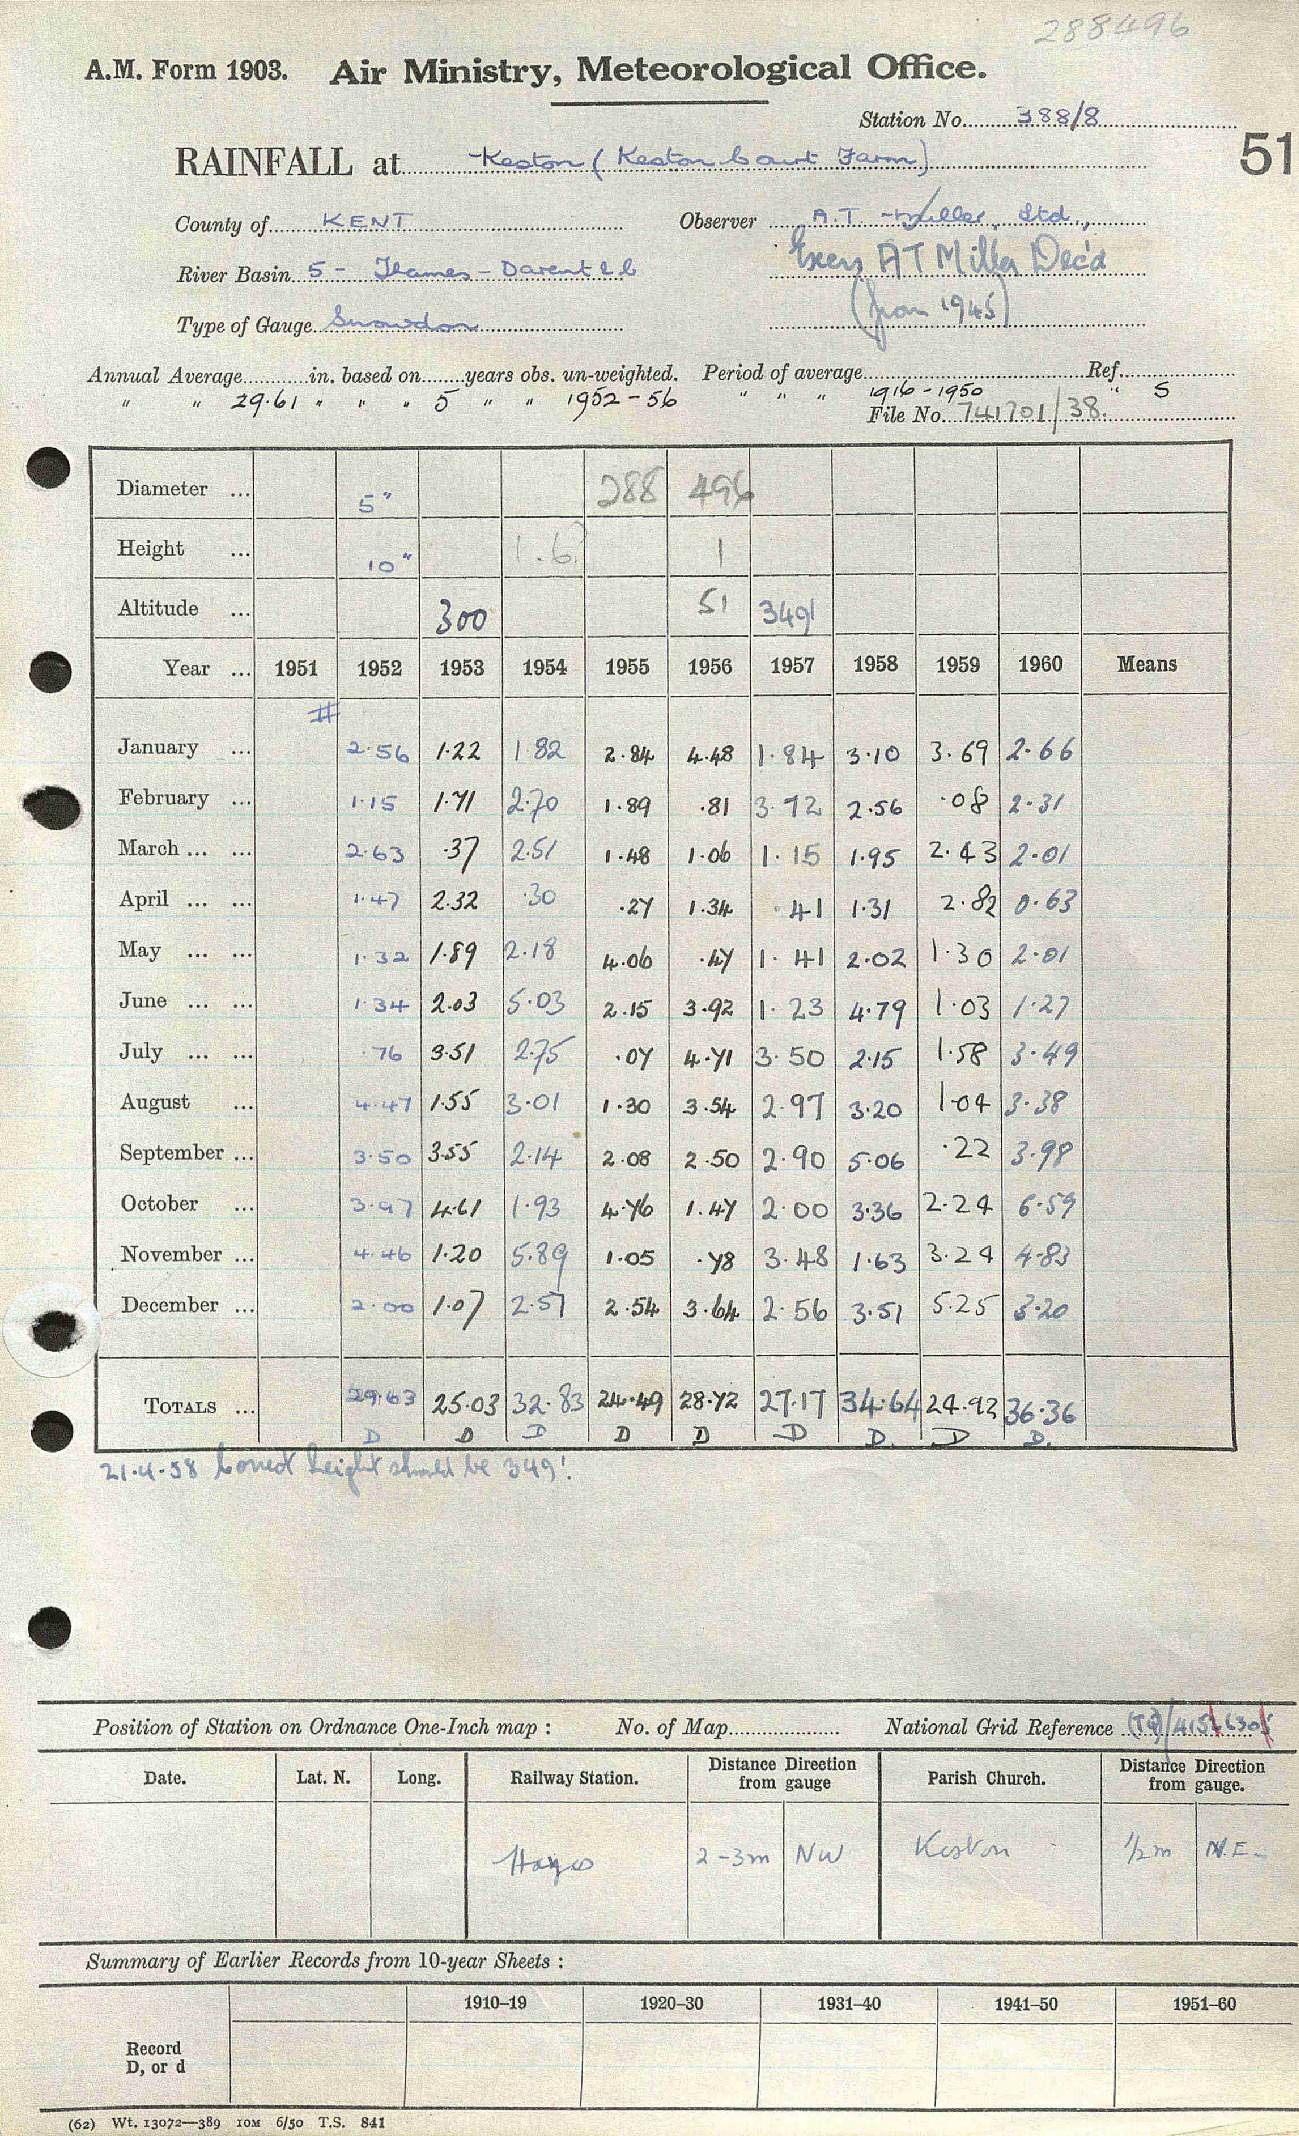 288496
A.M. Form 1903. Air Ministry, Meteorological Office.
Station No. 388/8
51
RAINFALL at Keston (Keston Court Farm)
County of KENT Observer A.T. Miller, Ltd,
River Basin 5 - Thames - Darent & c Exers AT Miller Dec'd
Type of Gauge Snowdon (from 1945)
Annual Average in. based on years obs. un-weighted. Period of average Ref.
" " 29.61 " " " 5 " " 1952-56 " " " 1916-1950 " S
File No. 741701/38
Diameter ... 5" 288 496
Height ... 10" 1.6 1
Altitude ... 300 51 349'
Year ... 1951 1952 1953 1954 1955 1956 1957 1958 1959 1960 Means
#
January ... 2.56 1.22 1 82 2.84 4.48 1.84 3.10 3.69 2.66
February ... 1.15 1.71 2.70 1.89 .81 3.72 2.56 .08 2.31
March ... ... 2.63 .37 2.51 1.48 1.06 1.15 1.95 2.43 2.01
April ... ... 1.47 2.32 .30 .27 1.34 .41 1.31 2.82 0.63
May ... ... 1.32 1.89 2.18 4.06 .47 1.41 2.02 1.30 2.01
June ... ... 1.34 2.03 5.03 2.15 3.92 1.23 4.79 1.03 1.27
July ... ... 76 3.51 2.75 .07 4.71 3.50 2.15 1.58 3.49
August ... 4.47 1.55 3.01 1.30 3.54 2.97 3.20 1.04 3.38
September ... 3.50 3.55 2.14 2.08 2.50 2.90 5.06 .22 3.98
October ... 3.97 4.61 1.93 4.76 1.47 2.00 3.36 2.24 6.59
November ... 4.46 1.20 5.89 1.05 .78 3.48 1.63 3.24 4.83
December ... 2.00 1.07 2.57 2.54 3.64 2.56 3.51 5.25 3.20
TOTALS ... 29.63 25.03 32.83 24.49 28.72 27.17 34.64 24.92 36.36
D D D D D D D. D D.
21.4.58 Correct height should be 349'.
Position of Station on Ordnance One-Inch map : No. of Map National Grid Reference (TQ)
Date. Lat. N. Long. Railway Station. Distance Direction from gauge Parish Church. Distance Direction from gauge.
Hayes 2-3m NW Keston 1/2m N.E.
Summary of Earlier Records from 10-year Sheets :
1910–19 1920–30 1931–40 1941–50 1951–60
Record
D, or d
(62) Wt. 13072—389 10M 6/50 T.S. 841